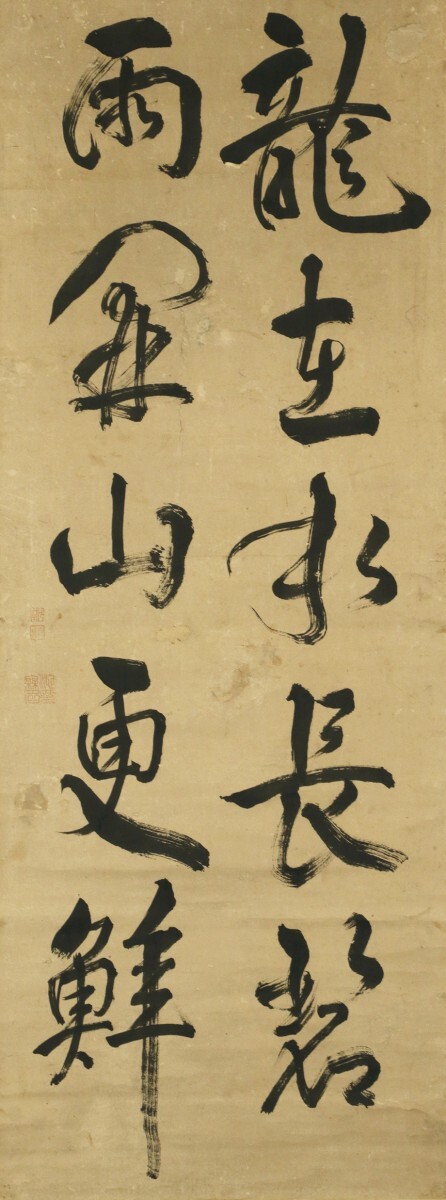 龍在水長碧
雨開山更鮮